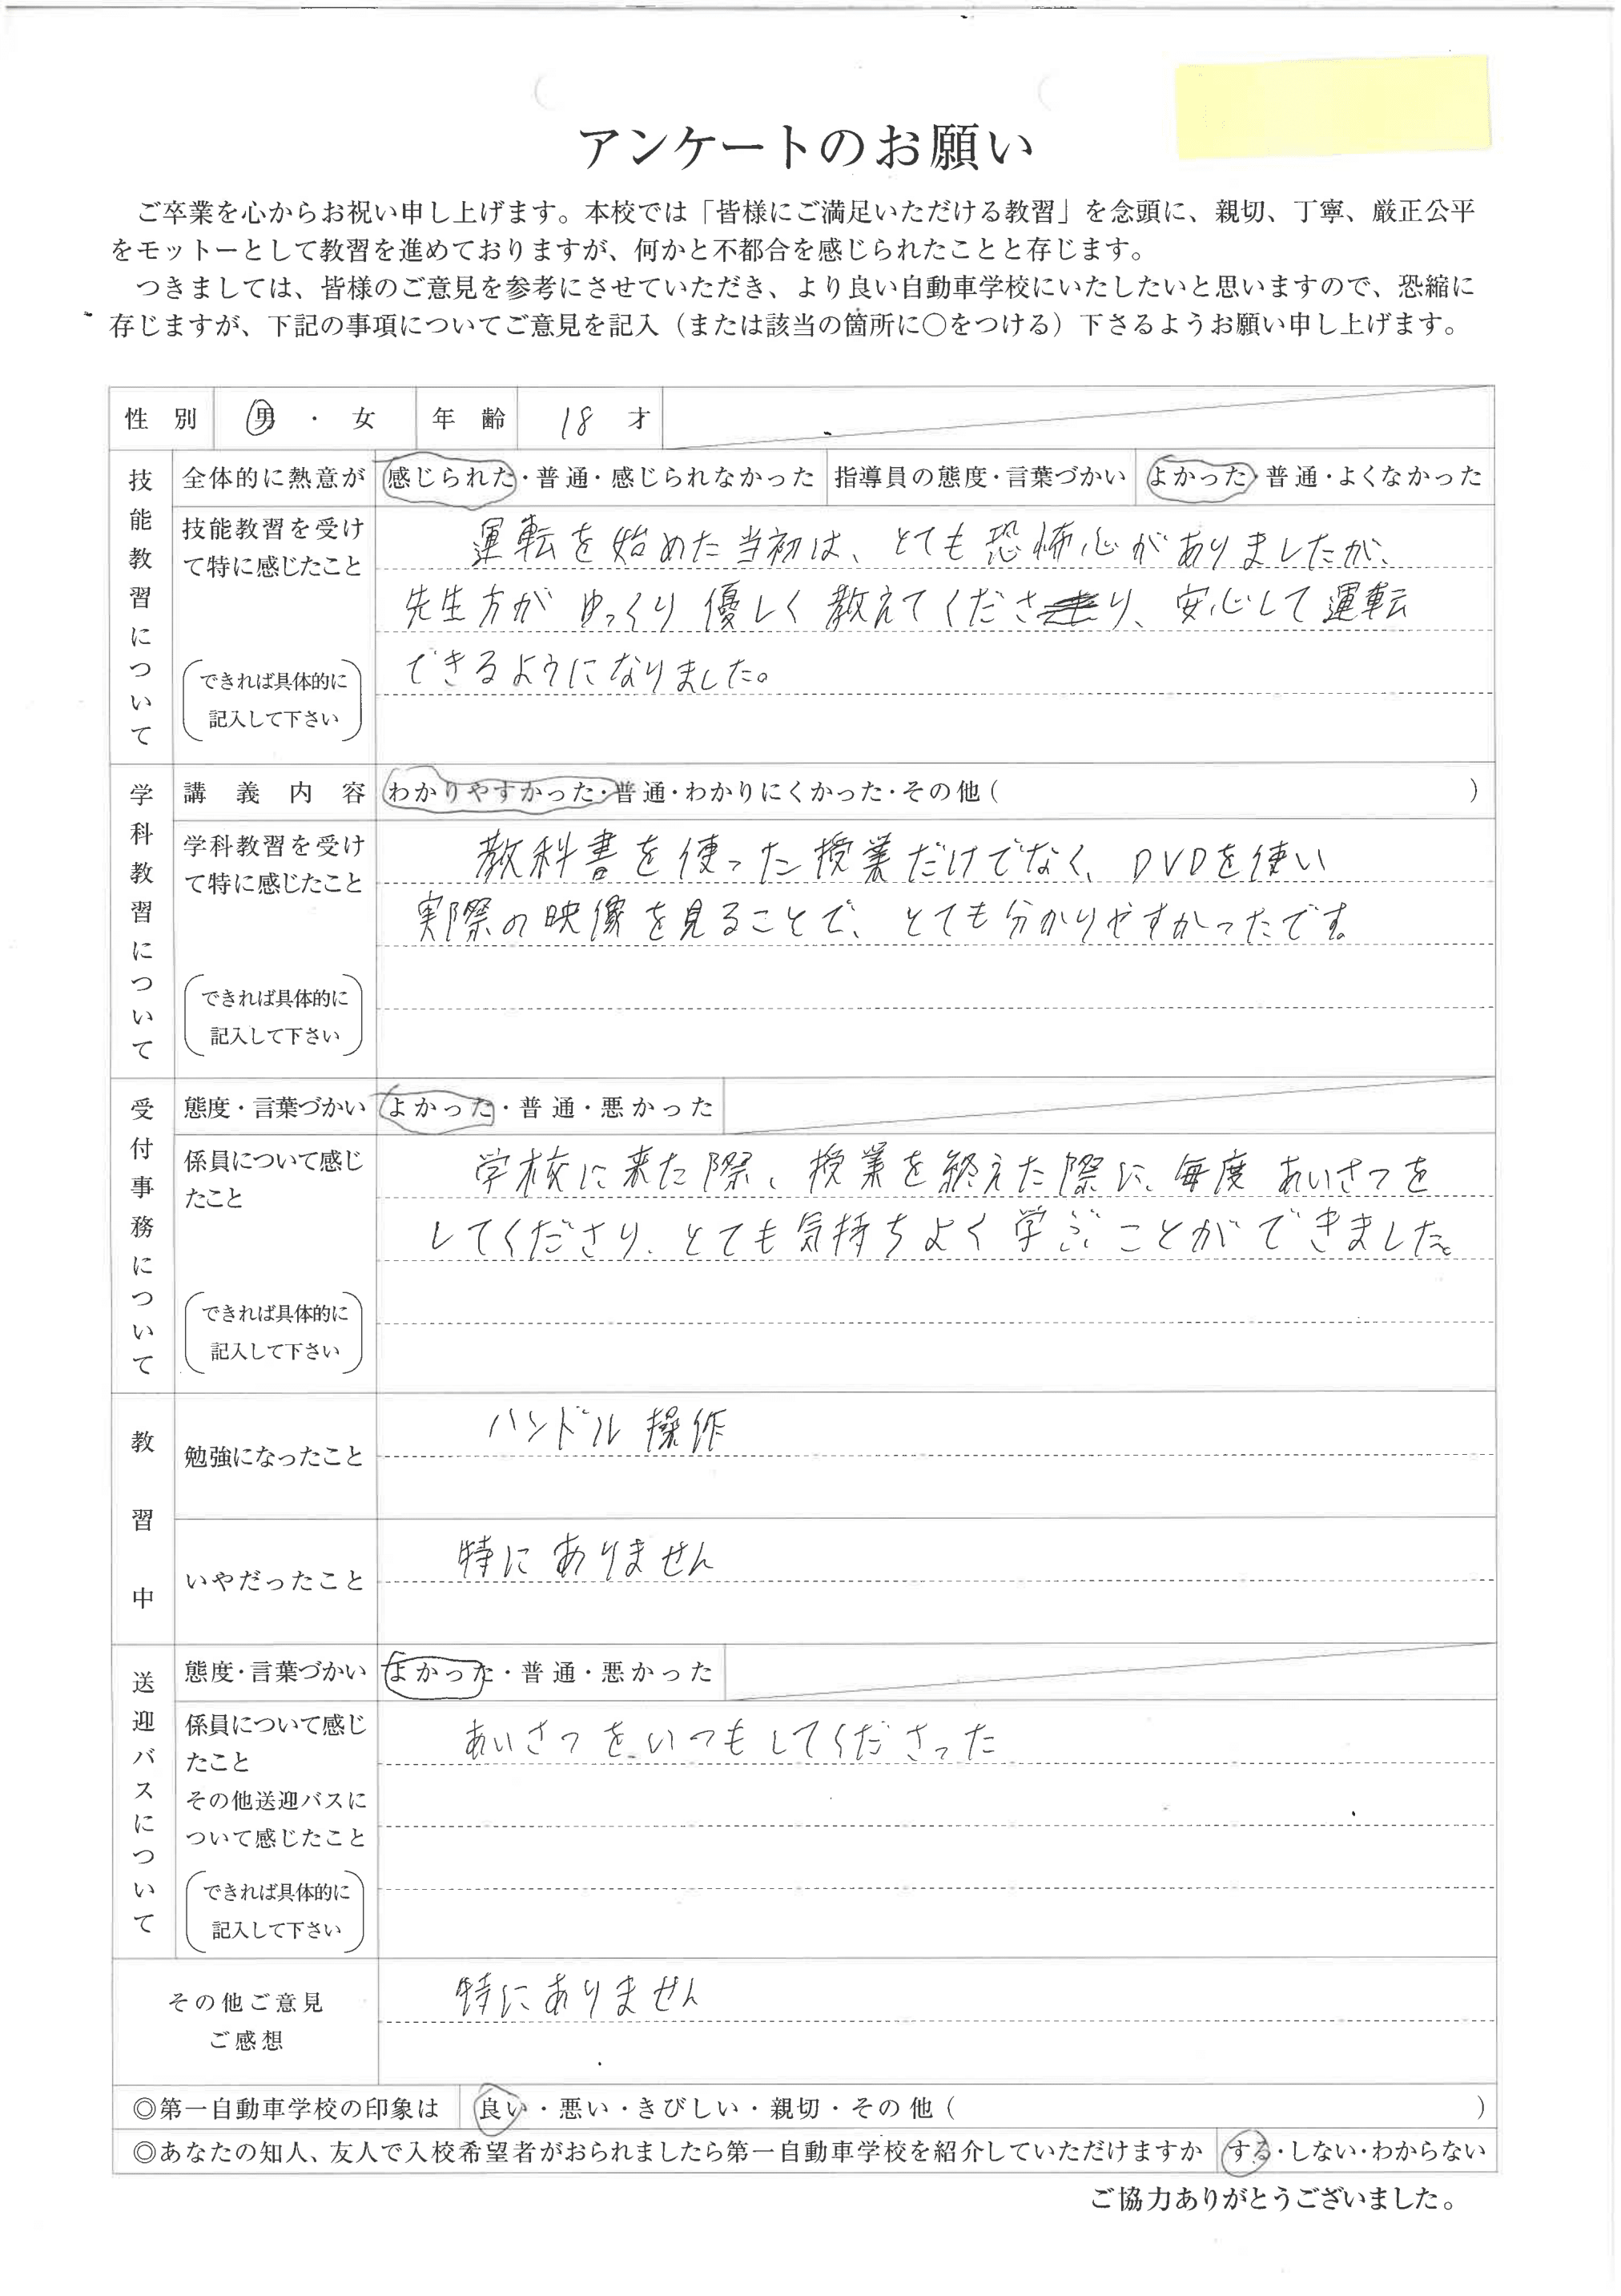 アンケートのお願い
ご卒業を心からお祝い申し上げます。本校では「皆様にご満足いただける教習」を念頭に、親切、丁寧、厳正公平
をモットーとして教習を進めておりますが、何かと不都合を感じられたことと存じます。
つきましては、皆様のご意見を参考にさせていただき、より良い自動車学校にいたしたいと思いますので、恐縮に
存じますが、下記の事項についてご意見を記入（または該当の箇所に〇をつける）下さるようお願い申し上げます。
性別 男・女 年齢 18才
技能教習について
全体的に熱意が 感じられた・普通・感じられなかった 指導員の態度・言葉づかい よかった・普通・よくなかった
技能教習を受け
て特に感じたこと
（できれば具体的に
記入して下さい）
運転を始めた当初は、とても恐怖心がありましたが、
先生方がゆっくり優しく教えてくださり、安心して運転
できるようになりました。
学科教習について
講義内容 わかりやすかった・普通・わかりにくかった・その他（ ）
学科教習を受け
て特に感じたこと
（できれば具体的に
記入して下さい）
教科書を使った授業だけでなく、DVDを使い
実際の映像を見ることで、とても分かりやすかったです。
受付事務について
態度・言葉づかい よかった・普通・悪かった
係員について感じ
たこと
（できれば具体的に
記入して下さい）
学校に来た際、授業を終えた際に、毎度あいさつを
してくださり、とても気持ちよく学ぶことができました。
教習中
勉強になったこと
ハンドル操作
いやだったこと
特にありません
送迎バスについて
態度・言葉づかい よかった・普通・悪かった
係員について感じ
たこと
その他送迎バスに
ついて感じたこと
（できれば具体的に
記入して下さい）
あいさつをいつもしてくださった
その他ご意見
ご感想
特にありません
◎第一自動車学校の印象は 良い・悪い・きびしい・親切・その他（ ）
◎あなたの知人、友人で入校希望者がおられましたら第一自動車学校を紹介していただけますか する・しない・わからない
ご協力ありがとうございました。